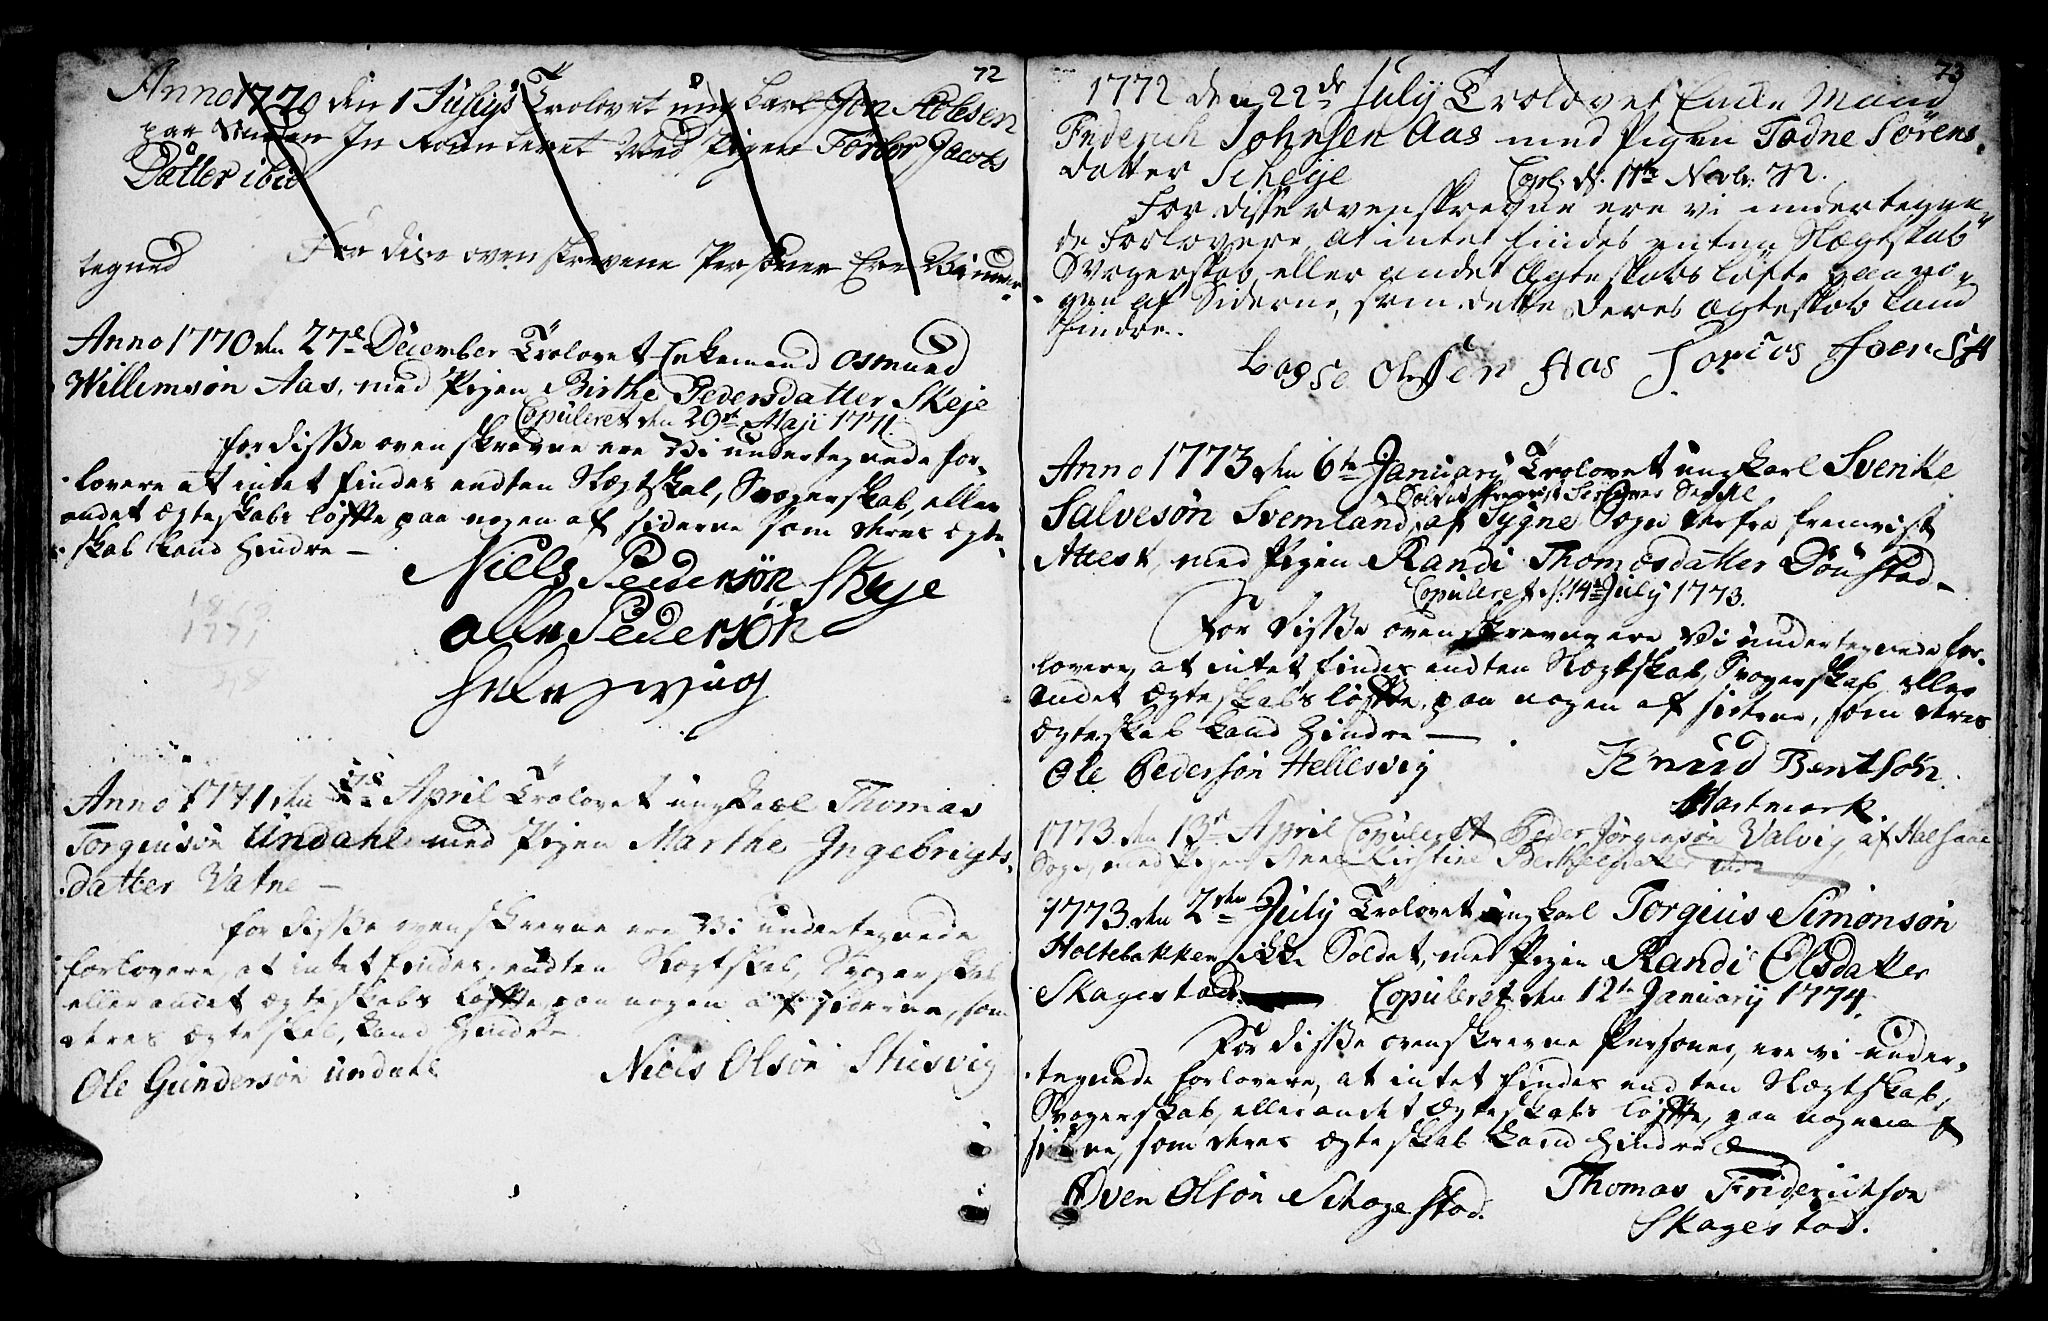 72
Anno 1770 den 1 Julyis Trolovet ung karl Jon
paa In Med Pigen Jacobs
Datter ibid
For disse ovenskrevene Personer Ere Vi under
tegned
Anno 1770 den 27de December Trolovet Enkemand Osmund
Willemsøn Aas, med Pigen Birthe Pedersdatter Skeje
Copuleret den 29de Maji 1771.
for disse ovenskrevne ere Vi undertegnede for-
lovere at intet findes endten Slægtskab, Svogerskab, eller
andet Ægteskabs løfte paa nogen af siderne som deres Ægte-
skab kand hindre —
Niels Pedersøn Skeje
Olle Pedersøn
Helesvig
Anno 1771 den April Trolovet ungkarl Thomas
Torgiusøn Undahl med Pigen Marthe Ingebrigts-
datter Vatne —
for disse ovenskrevne ere Vi undertegnede
forlovere, at intet findes, endten Slægtskab, Svogerskab
eller andet Ægteskabs løfte, paa nogen af siderne, som
deres Ægteskab, kand hindre —
Ole Gundersøn Undahl Niels Olsøn Stusvig
73
1772 den 22de July Trolovet Enke Mand
Friderich Johnsen Aas med Pigen Todne Sørens-
datter Scheije Copl: d: 11te Novbr: 72.
For disse ovenskrevne ere vi undertegne-
de Forlovere, at intet findes enten Slægtskab
Svogerskab eller andet Ægteskabs løfte paa no-
gen af Siderne, som dette deres Ægteskab kand
hindre.
Lasse Olssen Aas
Anno 1773 den 6te January Trolovet ungkarl Svenke
Salvesøn Svemland, af Sygne Sogn derfra fremvist
Attest, med Pigen Randi Thomæsdatter Dønstad —
Copuleret d: 14de July 1773.
For disse ovenskrevne ere Vi undertegnede for-
lovere, at intet findes endten Slægtskab, Svogerskab, eller
andet Ægteskabs løfte, paa nogen af siderne, som deres
Ægteskab kand hindre —
Ole Pedersøn Hellesvig Knud Bentsøn
Hartmark
1773 den 13de April Copuleret Peder Jørgensøn Valvig af Halsaae
Sogn, med Pigen Anne Kirstine
1773 den 2den July Trolovet ungkarl Torgius Simonsøn
Holtebakken ikke Soldat, med Pigen Randi Olsdatter
Skagestad. Copuleret den 12te January 1774.
For disse ovenskrevne Personer, ere vi under-
tegnede forlovere, at intet findes endten Slægtskab,
Svogerskab, eller andet Ægteskabs løfte, paa nogen af
siderne, som deres Ægteskab kand hindre
Sven Olsøn Schagestad. Thomas Friderichsøn
Skagestad.